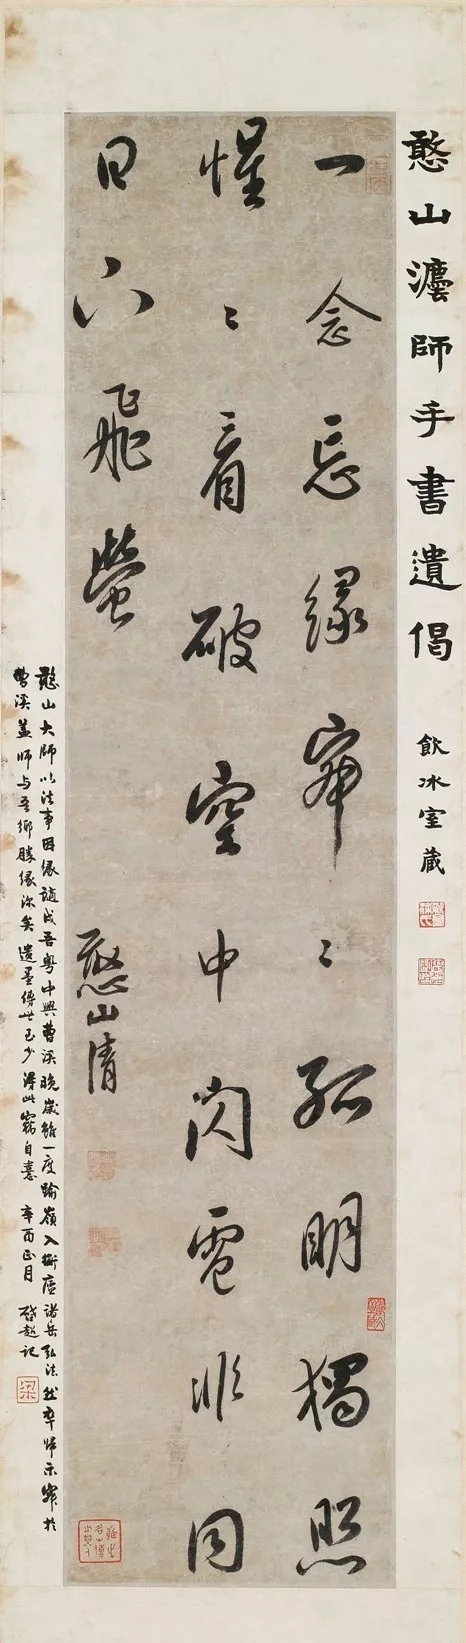 憨山灋師手書遺偈
飲冰室藏
一念忘緣寂〻孤明獨照
惺〻看破空中閃電非同
日下飛螢
憨山清
憨山大師以法事因緣謫戍吾粵中興曹溪晚歲雖一度踰嶺入衡廬諸岳弘法然卒歸示寂於
曹溪蓋師与吾鄉勝緣深矣遺墨傳世已少得此竊自憙 辛酉正月 啓超記
梁